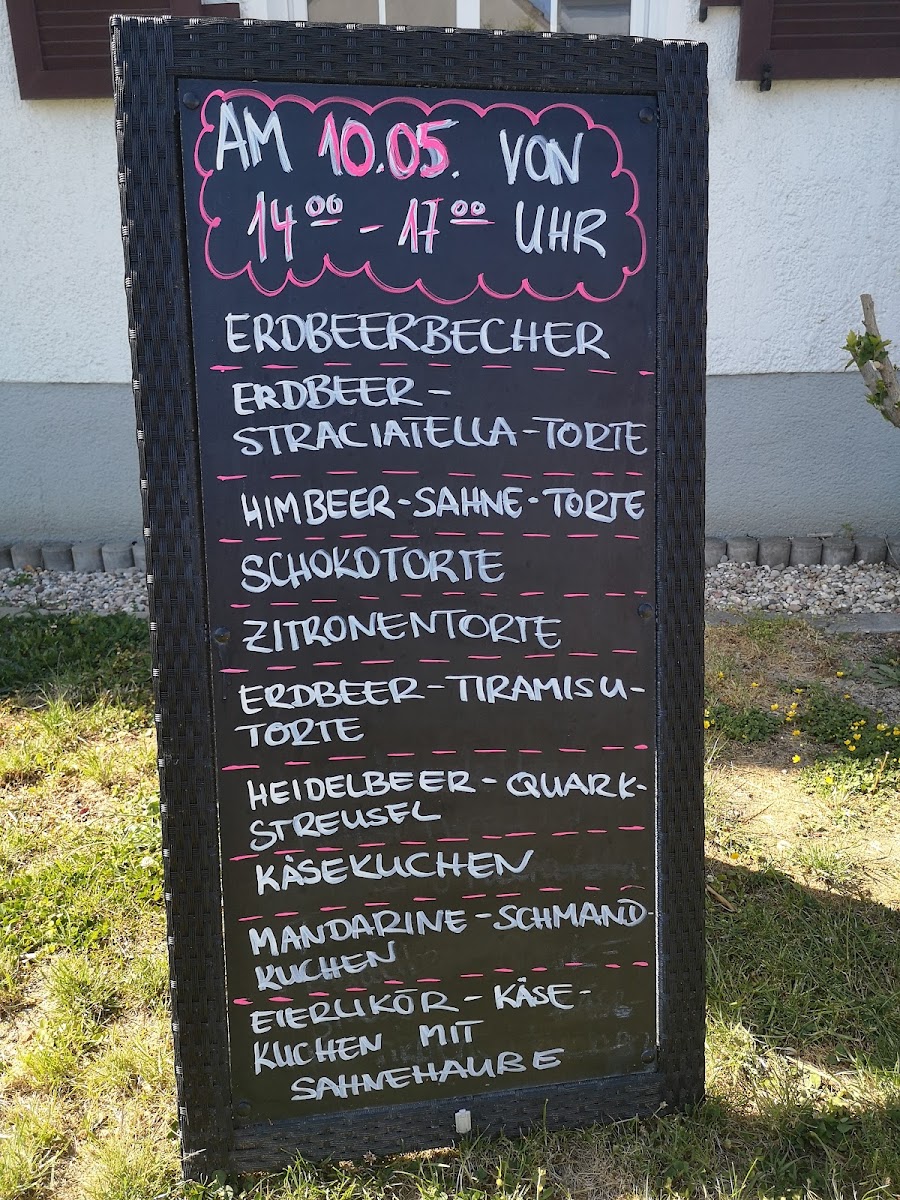 AM 10.05. VON
14⁰⁰ - 17⁰⁰ UHR
ERDBEERBECHER
ERDBEER-
STRACIATELLA-TORTE
HIMBEER-SAHNE-TORTE
SCHOKOTORTE
ZITRONENTORTE
ERDBEER-TIRAMISU-
TORTE
HEIDELBEER-QUARK-
STREUSEL
KÄSEKUCHEN
MANDARINE-SCHMAND-
KUCHEN
EIERLIKÖR-KÄSE-
KUCHEN MIT
SAHNEHAUBE